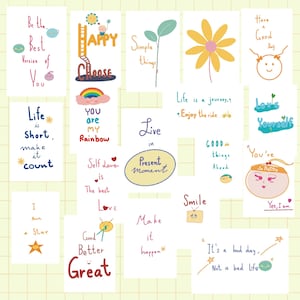 Be the
Best
Version of
You
HAPPY
CHOOSE
Simple
things
Have
a
Good
day
Life
is
Short,
make
it
count
YOU
are
MY
Rainbow
Live
in
Present
moment
Life is a journey,
Enjoy the ride
GOOD
things
Ahead
Love
Yourself
You're
Self love
is
The best
I
am
a Star
Love
Good
Better
Great
Make
it
happen
Smile
Yes, I am
It's a bad day,
Not a bad life